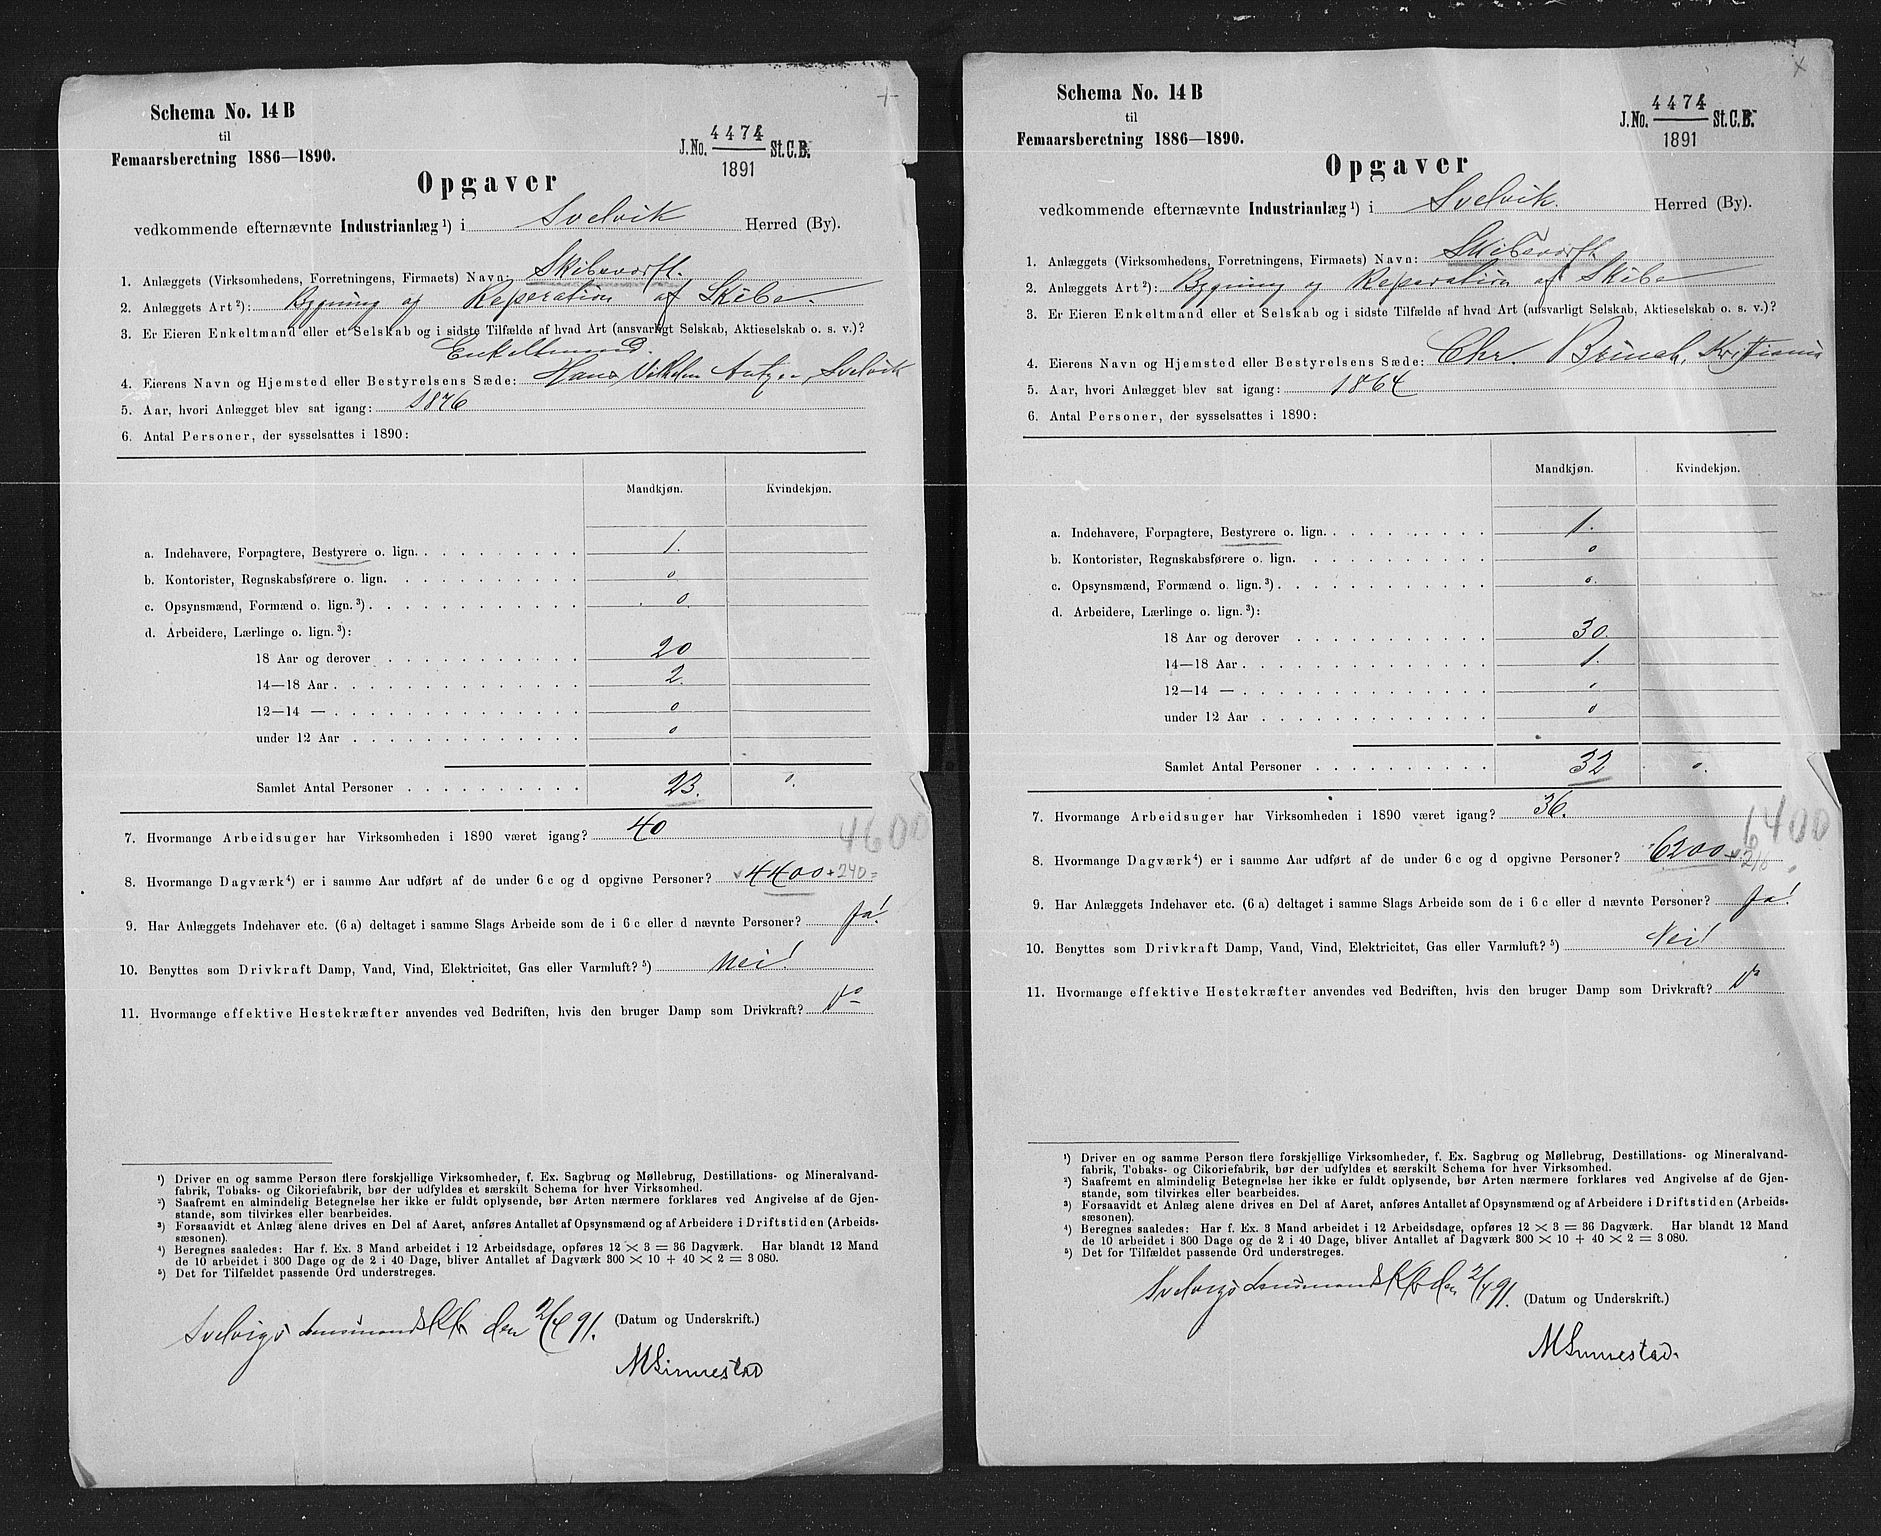 Schema No. 14 B
til
Femaarsberetning 1886—1890.
J. No. 4474 / 1891 St. C. B.
Opgaver
vedkommende efternævnte Industrianlæg ¹) i Svelvik Herred (By).
1. Anlæggets (Virksomhedens, Forretningens, Firmaets) Navn: Skibsværft.
2. Anlæggets Art ²): Bygning og Reperation af Skibe.
3. Er Eieren Enkeltmand eller et Selskab og i sidste Tilfælde af hvad Art (ansvarligt Selskab, Aktieselskab o. s. v.)?
Enkeltmand.
4. Eierens Navn og Hjemsted eller Bestyrelsens Sæde: Hans Vilhelm, Svelvik
5. Aar, hvori Anlægget blev sat igang: 1876
6. Antal Personer, der sysselsattes i 1890:
Mandkjøn. Kvindekjøn.
a. Indehavere, Forpagtere, Bestyrere o. lign. 1.
b. Kontorister, Regnskabsførere o. lign. 0
c. Opsynsmænd, Formænd o. lign. ³) 0.
d. Arbeidere, Lærlinge o. lign. ³):
18 Aar og derover 20
14—18 Aar 2.
12—14 — 0
under 12 Aar 0
Samlet Antal Personer 23. 0.
7. Hvormange Arbeidsuger har Virksomheden i 1890 været igang? 40
4600
8. Hvormange Dagværk ⁴) er i samme Aar udført af de under 6 c og d opgivne Personer? 4400 + 240 =
9. Har Anlæggets Indehaver etc. (6 a) deltaget i samme Slags Arbeide som de i 6 c eller d nævnte Personer? Ja!
10. Benyttes som Drivkraft Damp, Vand, Vind, Elektricitet, Gas eller Varmluft? ⁵) Nei!
11. Hvormange effektive Hestekræfter anvendes ved Bedriften, hvis den bruger Damp som Drivkraft?
¹) Driver en og samme Person flere forskjellige Virksomheder, f. Ex. Sagbrug og Møllebrug, Destillations- og Mineralvand-
fabrik, Tobaks- og Cikoriefabrik, bør der udfyldes et særskilt Schema for hver Virksomhed.
²) Saafremt en almindelig Betegnelse her ikke er fuldt oplysende, bør Arten nærmere forklares ved Angivelse af de Gjen-
stande, som tilvirkes eller bearbeides.
³) Forsaavidt et Anlæg alene drives en Del af Aaret, anføres Antallet af Opsynsmænd og af Arbeidere i Driftstiden (Arbeids-
sæsonen).
⁴) Beregnes saaledes: Har f. Ex. 3 Mand arbeidet i 12 Arbeidsdage, opføres 12 × 3 = 36 Dagværk. Har blandt 12 Mand
de 10 arbeidet i 300 Dage og de 2 i 40 Dage, bliver Antallet af Dagværk 300 × 10 + 40 × 2 = 3 080.
⁵) Det for Tilfældet passende Ord understreges.
Svelvigs Lensmandskt. den 2/4 91. (Datum og Underskrift.)
M Linnestad
Schema No. 14 B
til
Femaarsberetning 1886—1890.
J. No. 4474 / 1891 St. C. B.
Opgaver
vedkommende efternævnte Industrianlæg ¹) i Svelvik. Herred (By).
1. Anlæggets (Virksomhedens, Forretningens, Firmaets) Navn: Skibsværft.
2. Anlæggets Art ²): Bygning og Reparation af Skibe
3. Er Eieren Enkeltmand eller et Selskab og i sidste Tilfælde af hvad Art (ansvarligt Selskab, Aktieselskab o. s. v.)?
4. Eierens Navn og Hjemsted eller Bestyrelsens Sæde: Chr. Brinch, Kristiania
5. Aar, hvori Anlægget blev sat igang: 1864
6. Antal Personer, der sysselsattes i 1890:
Mandkjøn. Kvindekjøn.
a. Indehavere, Forpagtere, Bestyrere o. lign. 1.
b. Kontorister, Regnskabsførere o. lign. 0
c. Opsynsmænd, Formænd o. lign. ³) 0.
d. Arbeidere, Lærlinge o. lign. ³):
18 Aar og derover 30.
14—18 Aar 1.
12—14 — 0
under 12 Aar 0
Samlet Antal Personer 32 0.
7. Hvormange Arbeidsuger har Virksomheden i 1890 været igang? 36.
6400
8. Hvormange Dagværk ⁴) er i samme Aar udført af de under 6 c og d opgivne Personer? 6200
9. Har Anlæggets Indehaver etc. (6 a) deltaget i samme Slags Arbeide som de i 6 c eller d nævnte Personer? Ja!
10. Benyttes som Drivkraft Damp, Vand, Vind, Elektricitet, Gas eller Varmluft? ⁵) Nei!
11. Hvormange effektive Hestekræfter anvendes ved Bedriften, hvis den bruger Damp som Drivkraft?
¹) Driver en og samme Person flere forskjellige Virksomheder, f. Ex. Sagbrug og Møllebrug, Destillations- og Mineralvand-
fabrik, Tobaks- og Cikoriefabrik, bør der udfyldes et særskilt Schema for hver Virksomhed.
²) Saafremt en almindelig Betegnelse her ikke er fuldt oplysende, bør Arten nærmere forklares ved Angivelse af de Gjen-
stande, som tilvirkes eller bearbeides.
³) Forsaavidt et Anlæg alene drives en Del af Aaret, anføres Antallet af Opsynsmænd og af Arbeidere i Driftstiden (Arbeids-
sæsonen).
⁴) Beregnes saaledes: Har f. Ex. 3 Mand arbeidet i 12 Arbeidsdage, opføres 12 × 3 = 36 Dagværk. Har blandt 12 Mand
de 10 arbeidet i 300 Dage og de 2 i 40 Dage, bliver Antallet af Dagværk 300 × 10 + 40 × 2 = 3 080.
⁵) Det for Tilfældet passende Ord understreges.
Svelvigs Lensmandskt. den 2/4 91. (Datum og Underskrift.)
M Linnestad.